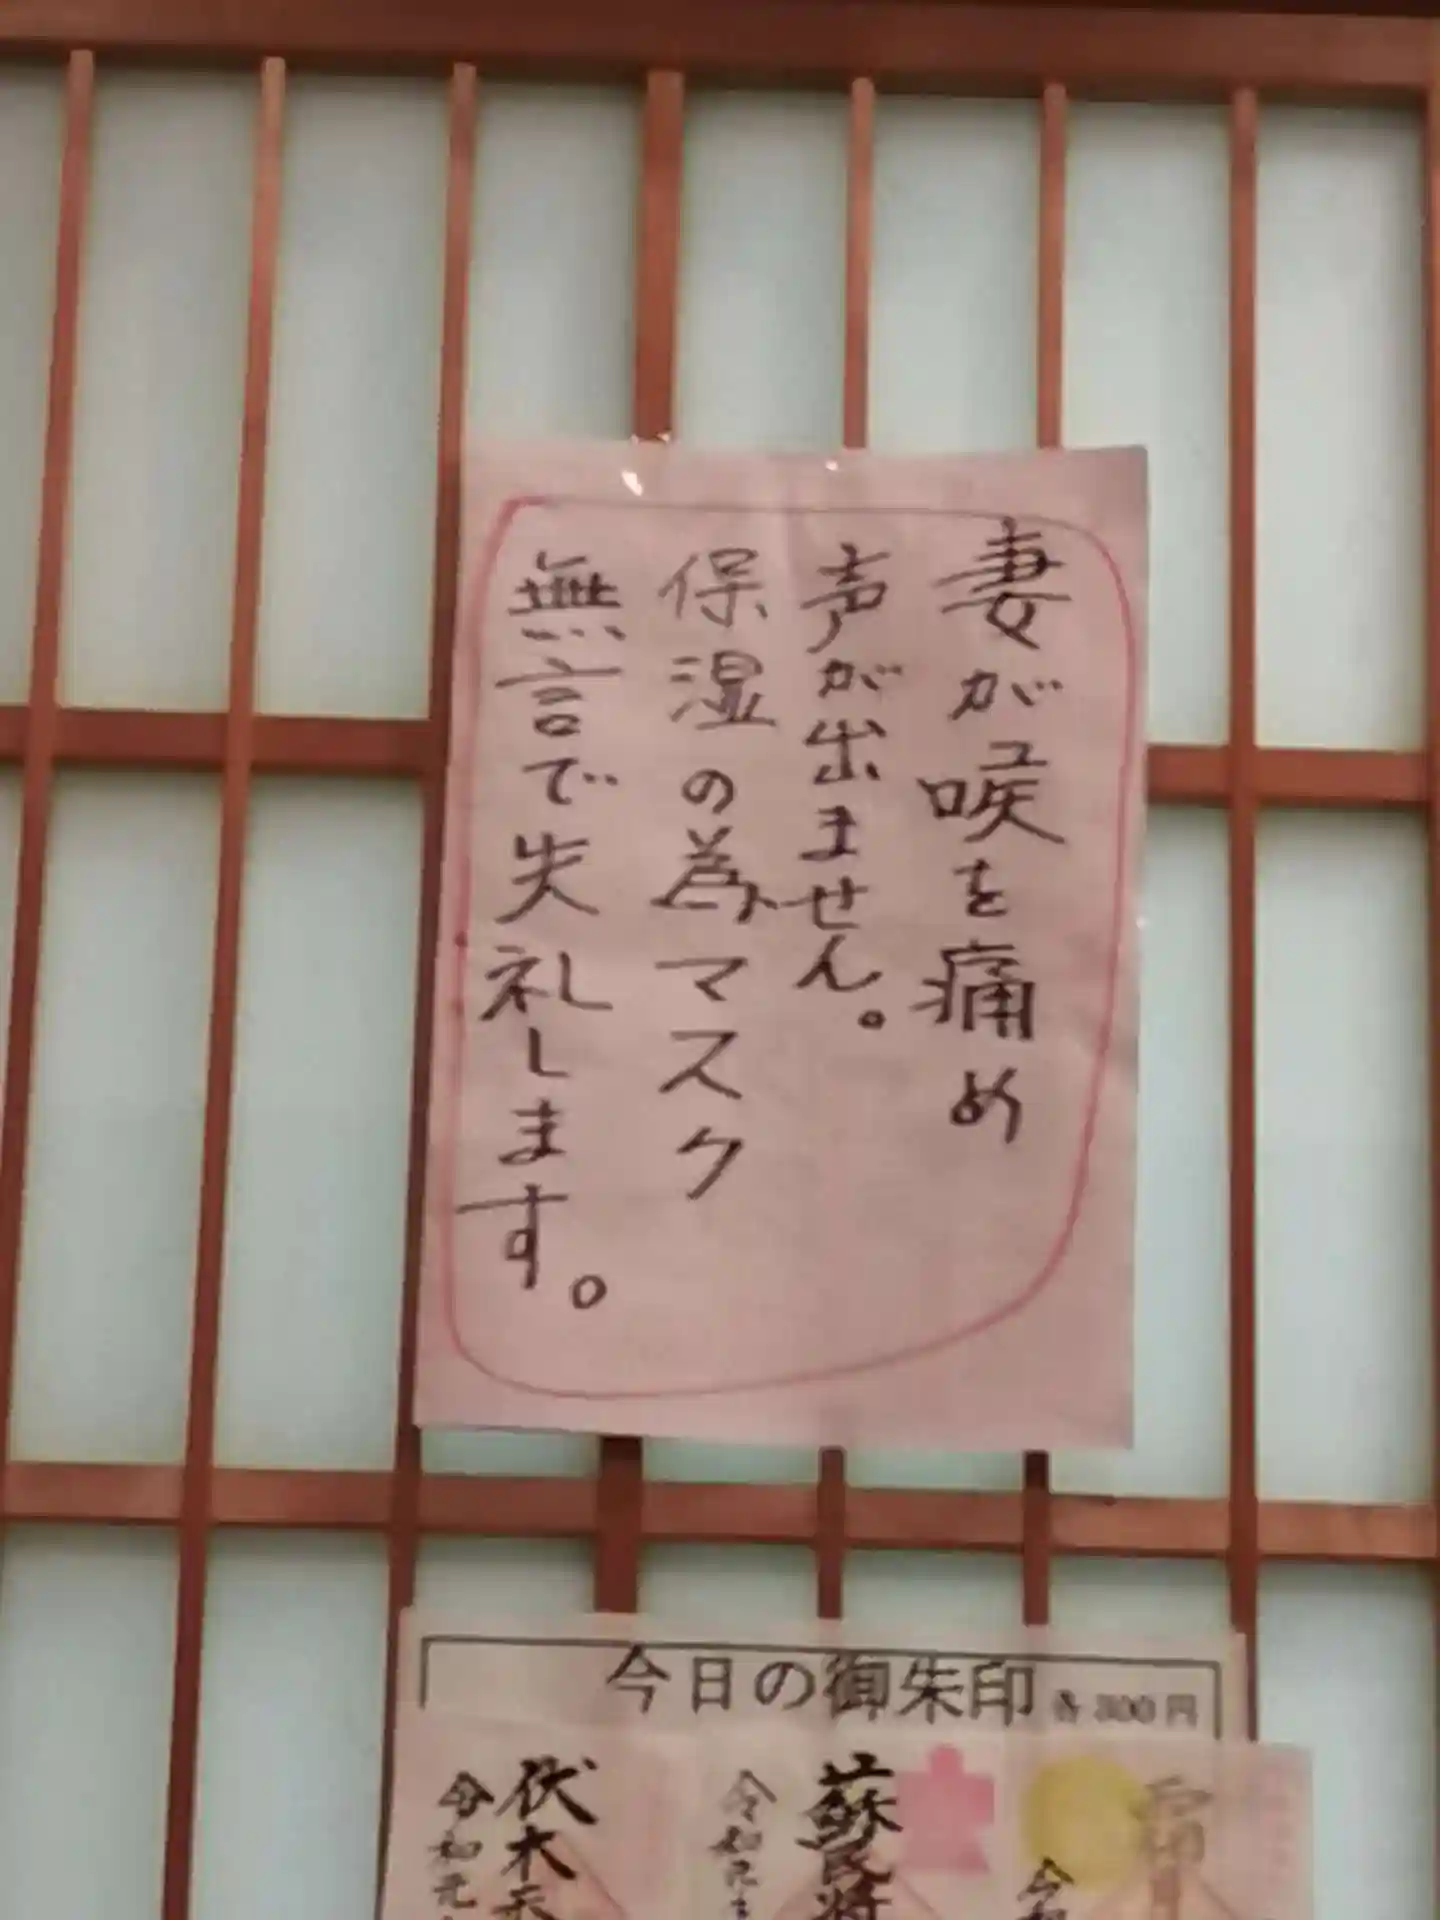 妻が喉を痛め
声が出ません。
保湿の為マスク
無言で失礼します。
今日の御朱印 各300円
蘇民将
令和元
伏木
令和元